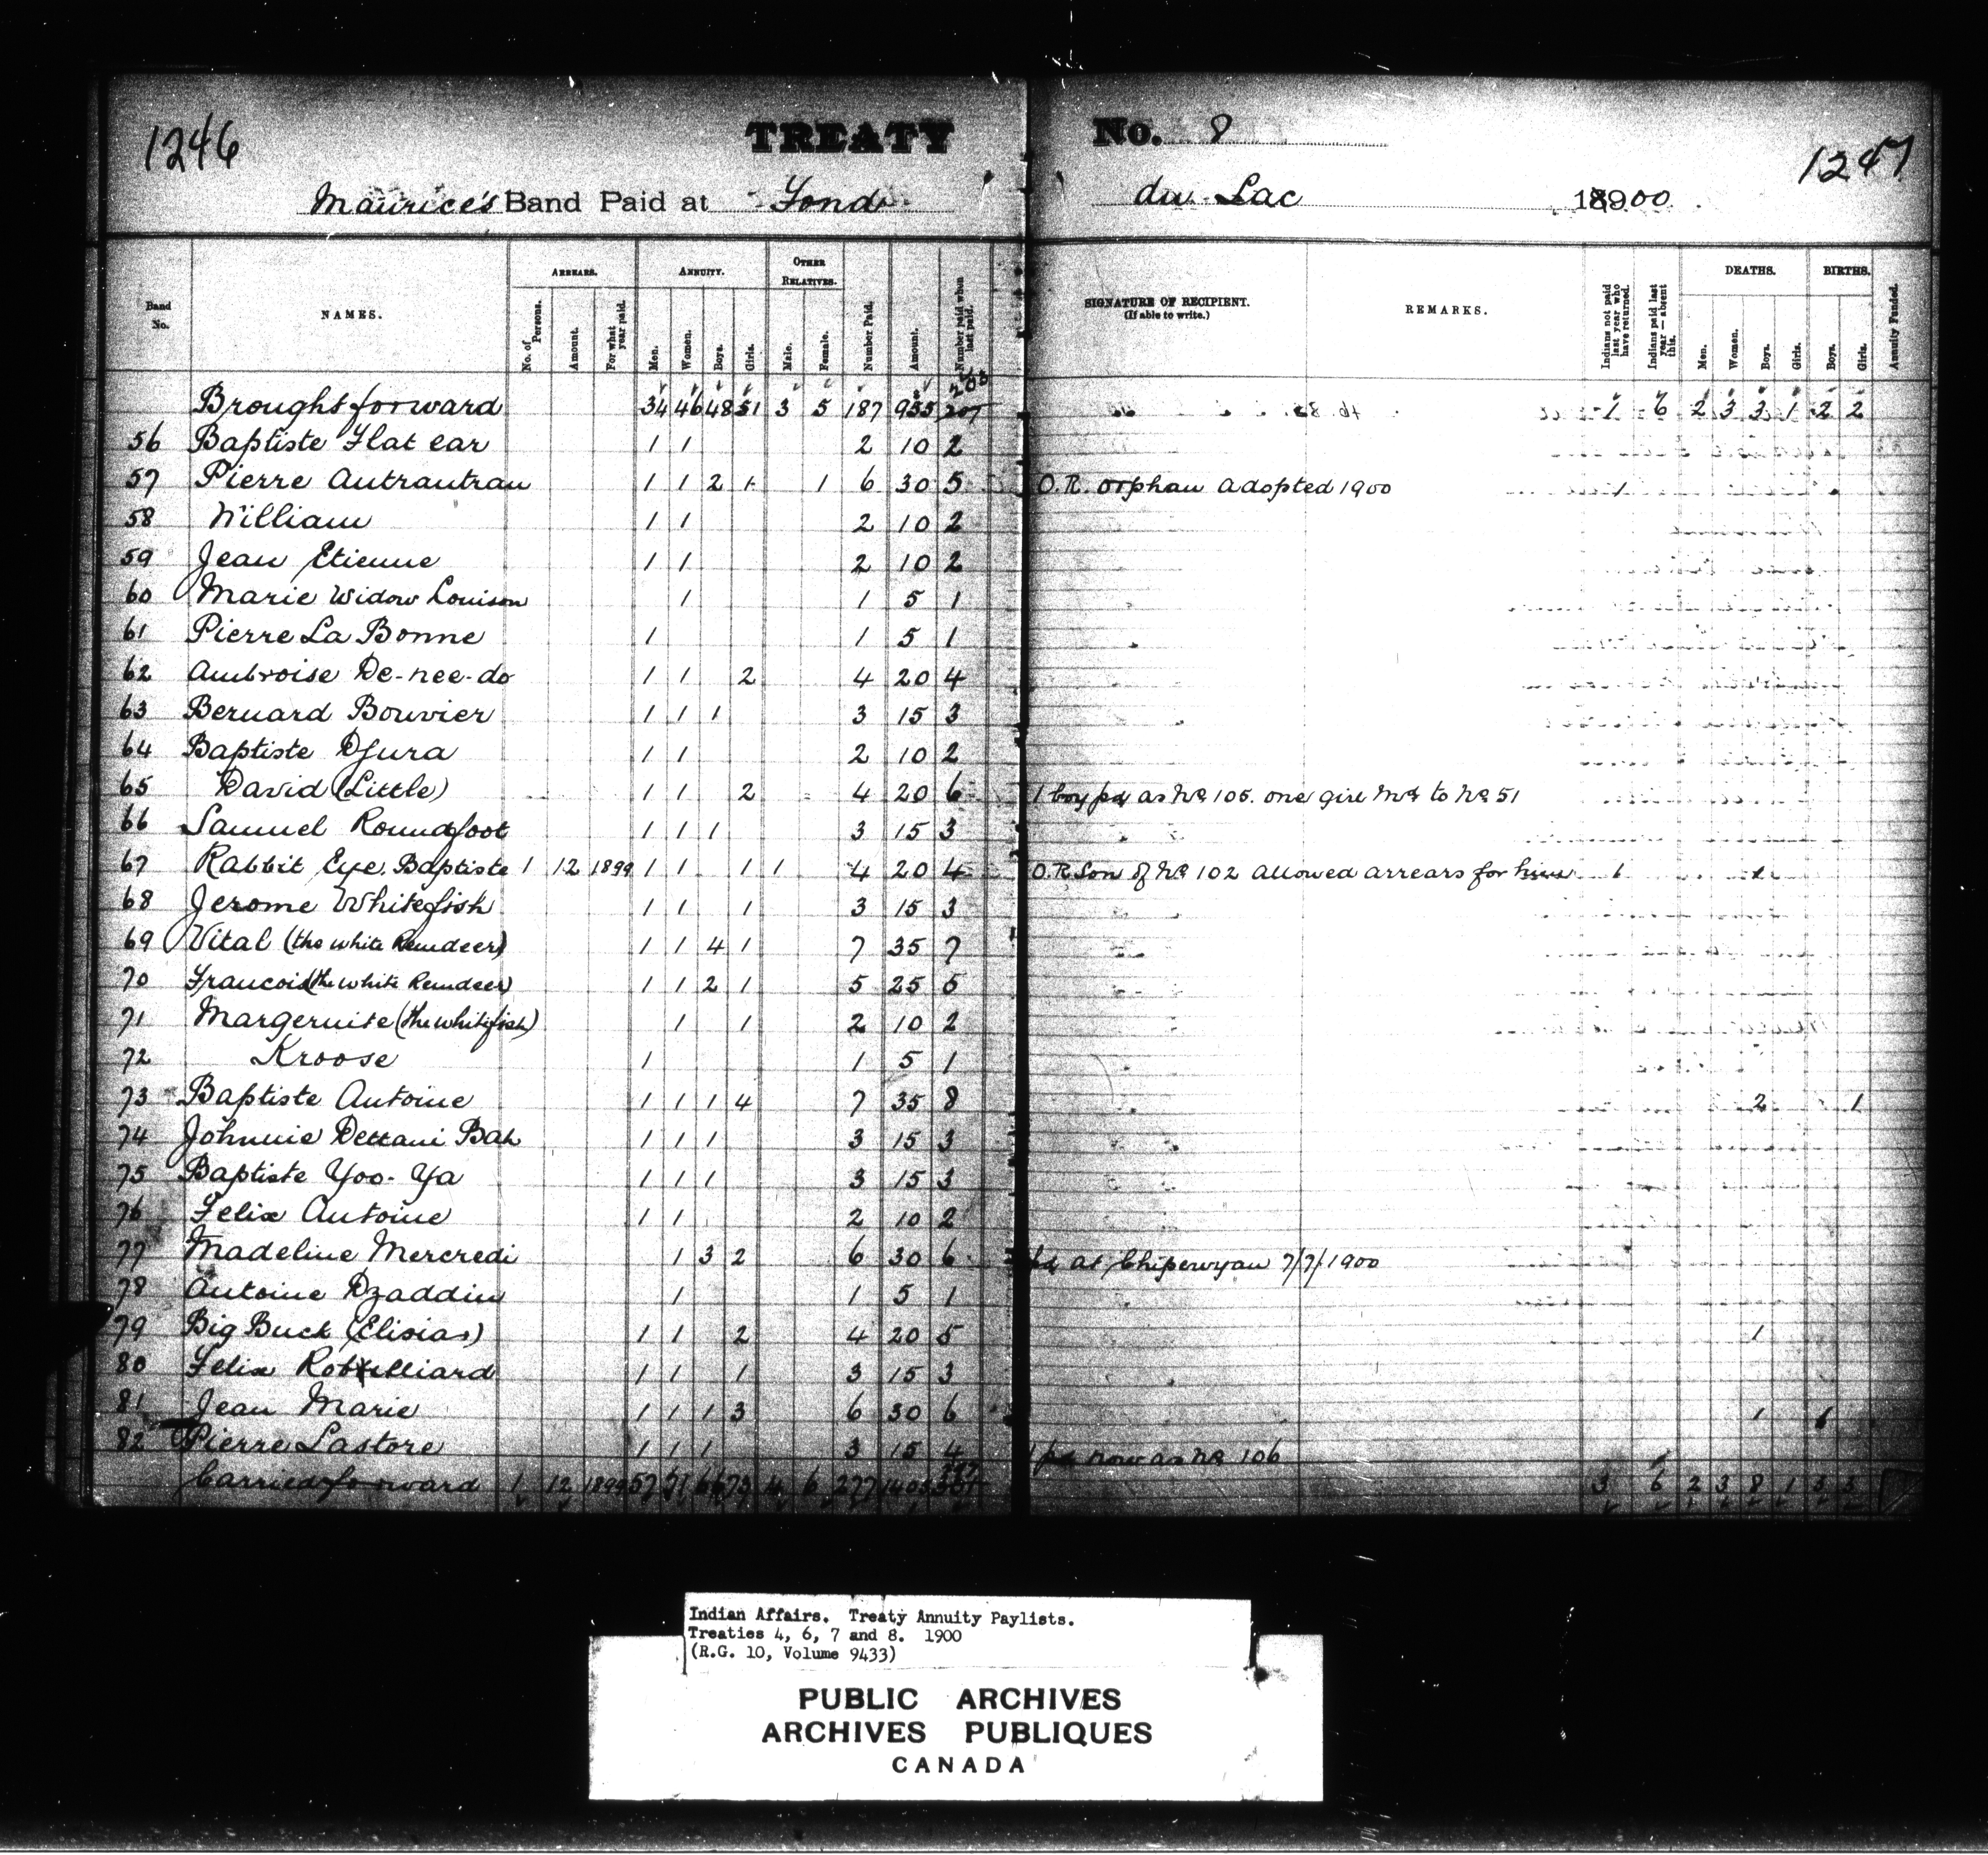 1246
TREATY No. 8
1247
Maurice's Band Paid at Fond du Lac 1900
Band No.
NAMES.
ARREARS.
No. of Persons.
Amount.
For what year paid.
ANNUITY.
Men.
Women.
Boys.
Girls.
OTHER RELATIVES.
Male.
Female.
Number Paid.
Amount.
Number paid when last paid.
SIGNATURE OF RECIPIENT.
(If able to write.)
REMARKS.
Indians not paid last year who have returned.
Indians paid last year — absent this.
DEATHS.
Men.
Women.
Boys.
Girls.
BIRTHS.
Boys.
Girls.
Annuity Funded.
Brought forward 34 46 48 51 3 5 187 935 207 208 1 6 2 3 3 1 2 2
56 Baptiste Flat ear 1 1 2 10 2
57 Pierre Autrautrau 1 1 2 1 1 6 30 5 O.R. orphan adopted 1900 1
58 William 1 1 2 10 2
59 Jean Etienne 1 1 2 10 2
60 Marie Widow Louison 1 1 5 1
61 Pierre La Bonne 1 1 5 1
62 Ambroise De-nee-do 1 1 2 4 20 4
63 Bernard Bouvier 1 1 1 3 15 3
64 Baptiste Djura 1 1 2 10 2
65 David (Little) 1 1 2 4 20 6 1 boy pd as No 105. one girl Md to No 51
66 Samuel Roundfoot 1 1 1 3 15 3
67 Rabbit Eye. Baptiste 1 12 1899 1 1 1 1 4 20 4 O.R. Son of No 102 allowed arrears for him 1 1
68 Jerome Whitefish 1 1 1 3 15 3
69 Vital (the white Reindeer) 1 1 4 1 7 35 7
70 Francois (the white Reindeer) 1 1 2 1 5 25 5
71 Margeruite (the whitefish) 1 1 2 10 2
72 Kroose 1 1 5 1
73 Baptiste Antoine 1 1 1 4 7 35 8 2 1
74 Johnnie Dettani Bah 1 1 1 3 15 3
75 Baptiste Yoo-Ya 1 1 1 3 15 3
76 Felix Antoine 1 1 2 10 2
77 Madeline Mercredi 1 3 2 6 30 6 pd at Chipewyan 7/7/1900
78 Antoine Dzaddin 1 1 5 1
79 Big Buck (Elisias) 1 1 2 4 20 5 1
80 Felix Robilliard 1 1 1 3 15 3
81 Jean Marie 1 1 1 3 6 30 6 1 1
82 Pierre Lastore 1 1 1 3 15 4 1 pd now as No 106
Carried forward 1 12 1899 57 71 66 73 4 6 277 1405 3 6 2 3 8 1 3 3
Indian Affairs. Treaty Annuity Paylists.
Treaties 4, 6, 7 and 8. 1900
(R.G. 10, Volume 9433)
PUBLIC ARCHIVES
ARCHIVES PUBLIQUES
CANADA